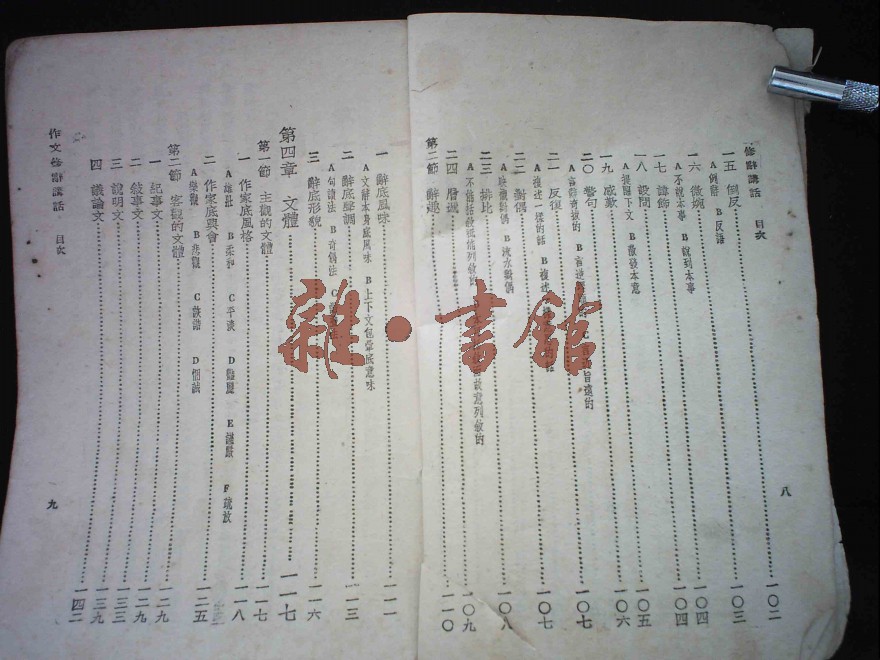 修辭講話 目次
一五 倒反……一〇二
A 倒語 B 反語
一六 微婉……一〇三
A 不說本事 B 說到本事
一七 諱飾……一〇四
一八 設問……一〇四
A 提開下文 B 激發本意
一九 感歎……一〇五
二〇 警句……一〇六
二一 反復……一〇七
A 複述一樣的話 B 複述
二二 對偶……一〇七
B 流水對偶
二三 排比……一〇八
二四 層遞……一〇九
故意列敘的
第二節 辭趣……一一〇
八
一 辭底風味……一一一
A 文辭本身底風味 B 上下文包彙底意味
二 辭底聲調……一一三
A 句讀法 B 奇偶法 C
三 辭底形貌……一一六
第四章 文體……一一七
第一節 主觀的文體……一一七
一 作家底風格……一一八
A 雄壯 B 柔和 C 平淡 D 豔麗 E 謹嚴 F 疏放
二 作家底興會……一二五
A 樂觀 B 悲觀 C 詼諧
第二節 客觀的文體……一二九
一 記事文……一二九
二 敍事文……一三三
三 說明文……一三九
四 議論文……一四二
作文修辭講話 目次
九
雜·書館